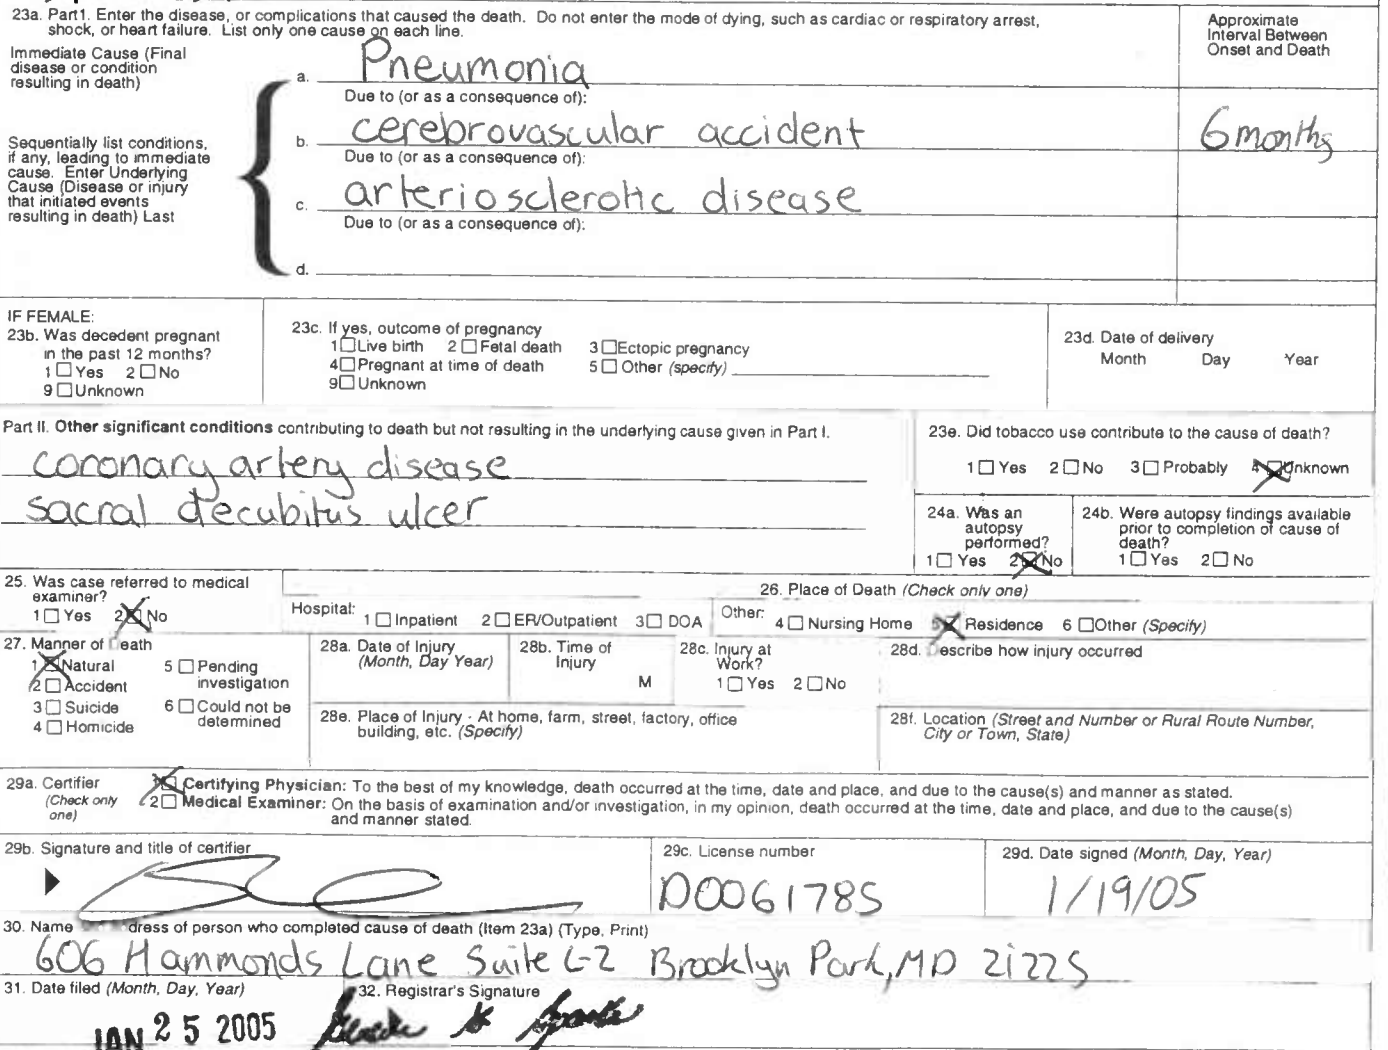 23a. Part1. Enter the disease, or complications that caused the death. Do not enter the mode of dying, such as cardiac or respiratory arrest,
shock, or heart failure. List only one cause on each line.
Approximate
Interval Between
Onset and Death
Immediate Cause (Final
disease or condition
resulting in death)
a. Pneumonia
Due to (or as a consequence of):
Sequentially list conditions,
if any, leading to immediate
cause. Enter Underlying
Cause (Disease or injury
that initiated events
resulting in death) Last
b. cerebrovascular accident 6 months
Due to (or as a consequence of):
c. arteriosclerotic disease
Due to (or as a consequence of):
d.
IF FEMALE:
23b. Was decedent pregnant
in the past 12 months?
1 Yes 2 No
9 Unknown
23c. If yes, outcome of pregnancy
1 Live birth 2 Fetal death 3 Ectopic pregnancy
4 Pregnant at time of death 5 Other (specify)
9 Unknown
23d. Date of delivery
Month Day Year
Part II. Other significant conditions contributing to death but not resulting in the underlying cause given in Part I.
coronary artery disease
sacral decubitus ulcer
23e. Did tobacco use contribute to the cause of death?
1 Yes 2 No 3 Probably 4 Unknown
24a. Was an
autopsy
performed?
1 Yes 2 No
24b. Were autopsy findings available
prior to completion of cause of
death?
1 Yes 2 No
25. Was case referred to medical
examiner?
1 Yes 2 No
26. Place of Death (Check only one)
Hospital: 1 Inpatient 2 ER/Outpatient 3 DOA Other: 4 Nursing Home 5 Residence 6 Other (Specify)
27. Manner of Death
1 Natural 5 Pending
investigation
2 Accident
3 Suicide 6 Could not be
determined
4 Homicide
28a. Date of Injury
(Month, Day Year)
28b. Time of
Injury
M
28c. Injury at
Work?
1 Yes 2 No
28d. Describe how injury occurred
28e. Place of Injury - At home, farm, street, factory, office
building, etc. (Specify)
28f. Location (Street and Number or Rural Route Number,
City or Town, State)
29a. Certifier
(Check only
one)
Certifying Physician: To the best of my knowledge, death occurred at the time, date and place, and due to the cause(s) and manner as stated.
2 Medical Examiner: On the basis of examination and/or investigation, in my opinion, death occurred at the time, date and place, and due to the cause(s)
and manner stated.
29b. Signature and title of certifier
29c. License number
D0061785
29d. Date signed (Month, Day, Year)
1/19/05
30. Name dress of person who completed cause of death (Item 23a) (Type, Print)
606 Hammonds Lane Suite L-2 Brooklyn Park, MD 21225
31. Date filed (Month, Day, Year)
JAN 25 2005
32. Registrar's Signature